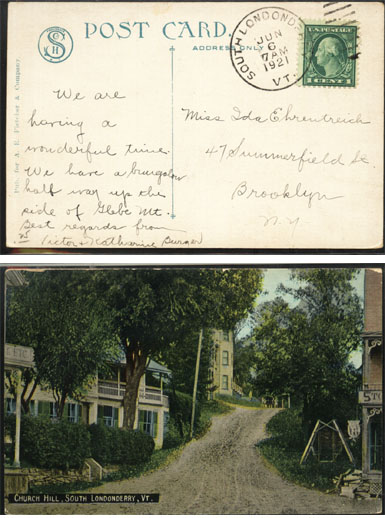 POST CARD.
ADDRESS ONLY
SOUTH LONDONDERRY
JUN
6
7AM
1921
VT.
U.S. POSTAGE
1 CENT 1
Pub. for A. E. Fletcher & Company.
We are
having a
wonderful time.
We have a bungalow
half way up the
side of Glebe Mt.
Best regards from
Victor & Katharine Burger
Miss Ida Ehrentreich
47 Summerfield
Brooklyn
N.Y.
CHURCH HILL, SOUTH LONDONDERRY, VT.